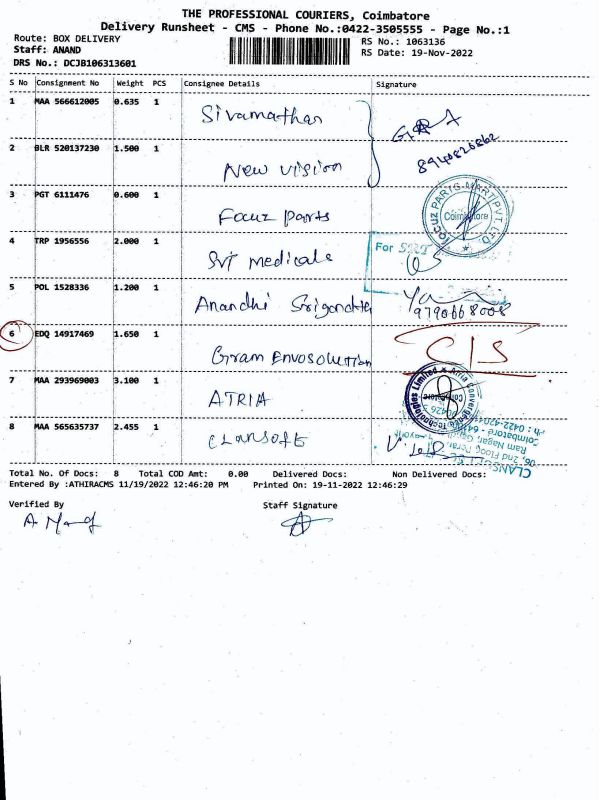 THE PROFESSIONAL COURIERS, Coimbatore
Delivery Runsheet - CMS - Phone No.:0422-3505555 - Page No.:1
Route: BOX DELIVERY
RS No.: 1063136
Staff: ANAND
RS Date: 19-Nov-2022
DRS No.: DCJB106313601
S No Consignment No Weight PCS Consignee Details Signature
1 MAA 566612005 0.635 1 Sivamathan
2 BLR 520137230 1.500 1 New vision
8940826862
3 PGT 6111476 0.600 1 Focuz parts
FOCUZ PARTS MART PVT. LTD.
Coimbatore
4 TRP 1956556 2.000 1 SVT medicals
For
5 POL 1528336 1.200 1 Anandhi
9790668008
6 EDQ 14917469 1.650 1 Gram Envosolution C/S
7 MAA 293969003 3.100 1 ATRIA
Atria Convergence Technologies Limited
Coimbatore
8 MAA 565635737 2.455 1 CLANSOFT
CLANSOFT
06, 2nd Floor,
Ram Nagar,
Coimbatore - 6410
Ph : 0422-420
Total No. Of Docs: 8 Total COD Amt: 0.00 Delivered Docs: Non Delivered Docs:
Entered By :ATHIRACMS 11/19/2022 12:46:20 PM Printed On: 19-11-2022 12:46:29
Verified By Staff Signature